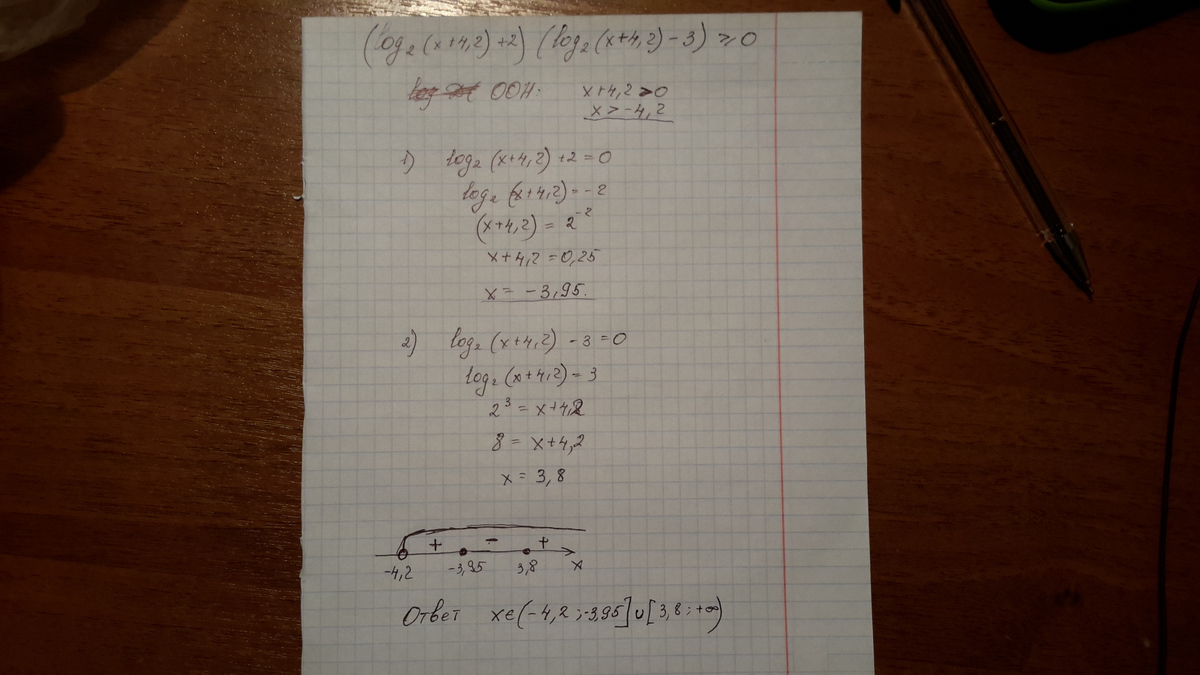 (log₂(x+4,2)+2) (log₂(x+4,2)-3) ⩾0
ООН. x+4,2>0
x>-4,2
1) log₂(x+4,2)+2=0
log₂(x+4,2)=-2
(x+4,2)=2⁻²
x+4,2=0,25
x= -3,95.
2) log₂(x+4,2) -3=0
log₂(x+4,2)=3
2³=x+4,2
8=x+4,2
x=3,8
+ - +
-4,2 -3,95 3,8 x
Ответ x∈(-4,2;-3,95]∪[3,8;+∞)